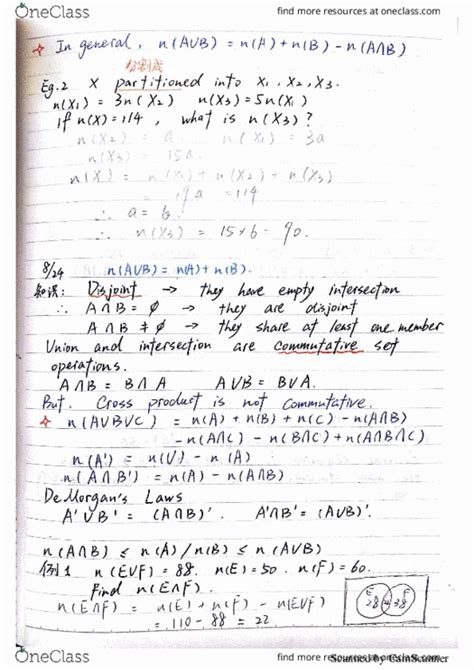 OneClass
find more resources at oneclass.com
☆ In general, n(A∪B) = n(A) + n(B) - n(A∩B)
分割成
Eg.2 X partitioned into X₁, X₂, X₃.
n(X₁) = 3n(X₂) n(X₃) = 5n(X₁)
If n(X) = 114, what is n(X₃)?
n(X₂) = a. n(X₁) = 3a
n(X₃) = 15a.
n(X) = n(X₁) + n(X₂) + n(X₃)
= 19a = 114
∴ a = 6.
∴ n(X₃) = 15×6 = 90.
8/24 n(A∪B) = n(A) + n(B).
知识: Disjoint → they have empty intersection
∴ A∩B = ∅ → they are disjoint
A∩B ≠ ∅ → they share at least one member
Union and intersection are commutative set
operations.
A∩B = B∩A A∪B = B∪A.
But. Cross product is not commutative.
☆ n(A∪B∪C) = n(A) + n(B) + n(C) - n(A∩B)
-n(A∩C) - n(B∩C) + n(A∩B∩C)
n(A') = n(U) - n(A)
n(A∩B') = n(A) - n(A∩B)
DeMorgan's Laws
A'∪B' = (A∩B)'. A'∩B' = (A∪B)'.
n(A∩B) ≤ n(A)/n(B) ≤ n(A∪B)
例1 n(E∪F) = 88. n(E) = 50. n(F) = 60.
Find n(E∩F)
n(E∩F) = n(E) + n(F) - n(E∪F)
= 110 - 88 = 22
E F
28 38
OneClass
find more resources at oneclass.com
Scanned by CamScanner